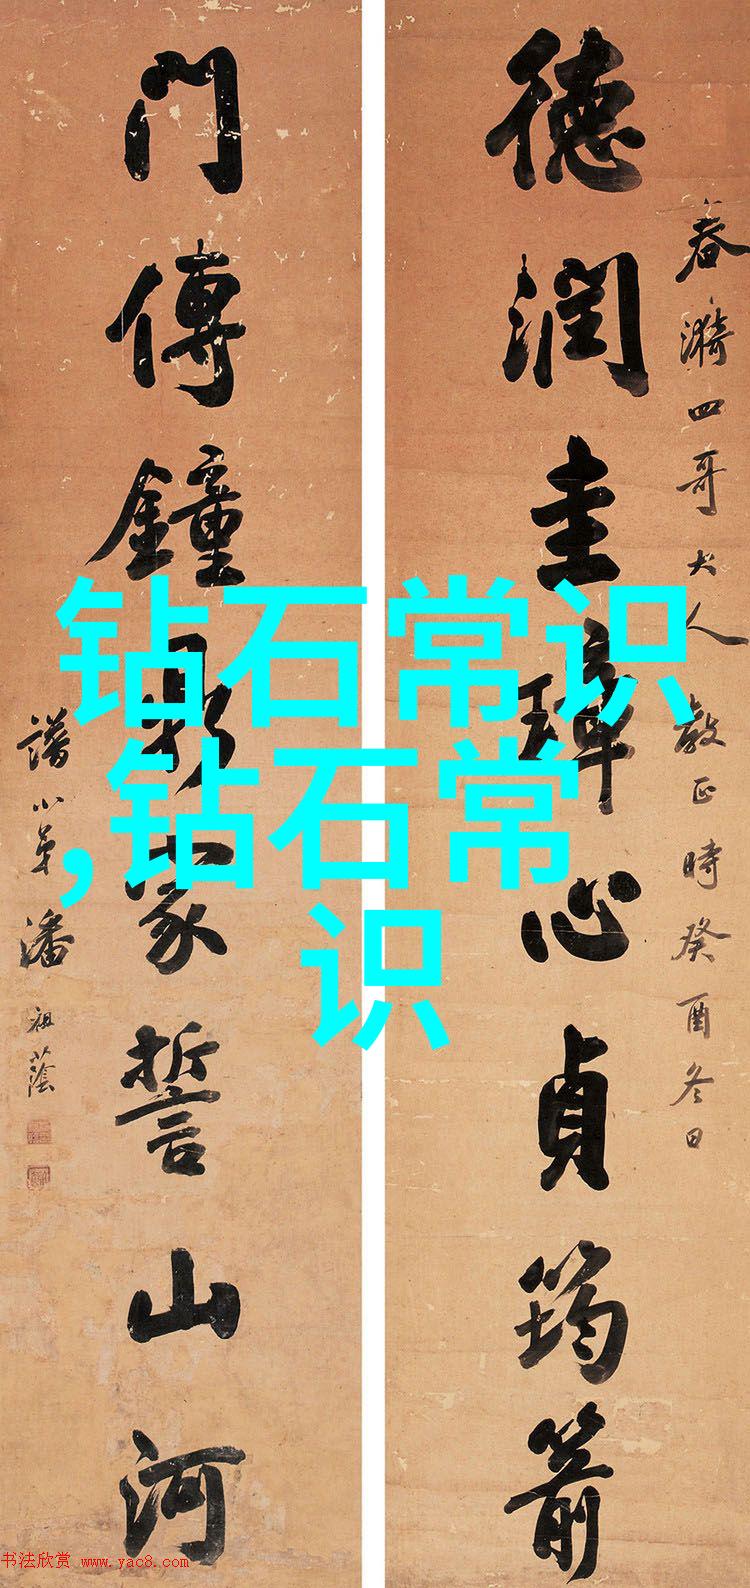 春漪四哥大人教正時癸酉冬日
德潤圭璋心貞筠箭
門傳鐘鼎家誓山河
譜小弟潘祖蔭
钻石常识
,钻石常
识
书法欣赏 www.yac8.com